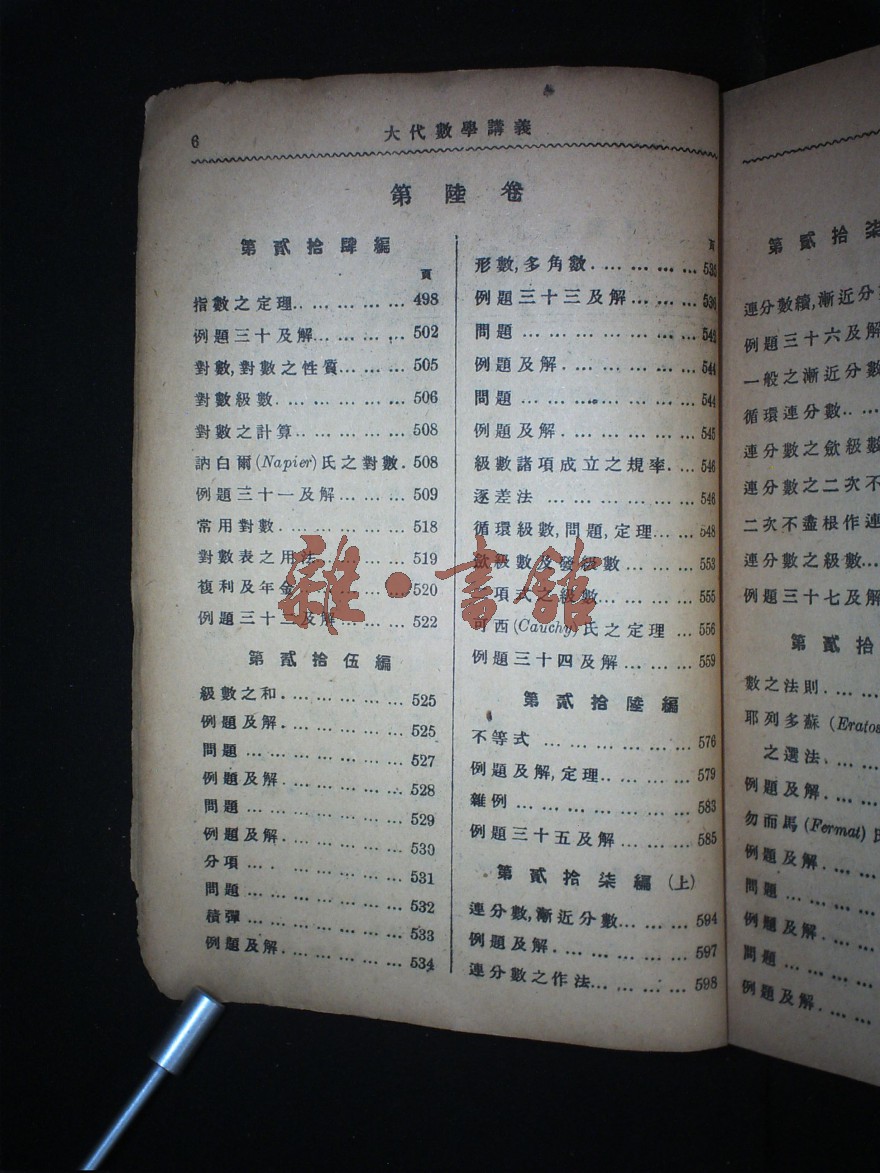 6
大代數學講義
第陸卷
第貳拾肆編
頁
指數之定理.. … … … … 498
例題三十及解… … … … 502
對數,對數之性質… … … 505
對數級數. … … … … … 506
對數之計算.. … … … … 508
訥白爾(Napier)氏之對數. 508
例題三十一及解… … … 509
常用對數. … … … … … 518
對數表之用法. … … … 519
複利及年金 … … … 520
例題三十二及解… … … 522
第貳拾伍編
級數之和. … … … … … 525
例題及解. … … … … … 525
問題 … … … … … … … 527
例題及解. … … … … … 528
問題 … … … … … … … 529
例題及解. … … … … … 530
分項 … … … … … … … 531
問題 … … … … … … … 532
積彈 … … … … … … … 533
例題及解. … … … … … 534
頁
形數,多角數. … … … …
例題三十三及解… … … 536
問題 … … … … … … … 542
例題及解. … … … … … 544
問題 … … … … … … … 544
例題及解. … … … … … 545
級數諸項成立之規率. … 546
逐差法 … … … … … … 546
循環級數,問題,定理… … 548
斂級數及發級數 … … … 553
項式之級數… … … 555
可西(Cauchy)氏之定理 … 556
例題三十四及解… … … 559
第貳拾陸編
不等式 … … … … … … 576
例題及解,定理.. … … … 579
雜例 … … … … … … … 583
例題三十五及解… … … 585
第貳拾柒編(上)
連分數,漸近分數… … … 594
例題及解. … … … … … 597
連分數之作法… … … … 598
第貳拾柒
連分數續,漸近分
例題三十六及解
一般之漸近分數
循環連分數.. …
連分數之斂級數
連分數之二次不
二次不盡根作連
連分數之級數…
例題三十七及解
第貳拾
數之法則. … …
耶列多蘇(Eratos
之選法. … …
例題及解. … …
勿而馬(Fermat)氏
例題及解. … …
問題 … … … …
例題及解. … …
問題 … … … …
例題及解. … …
雜·書館